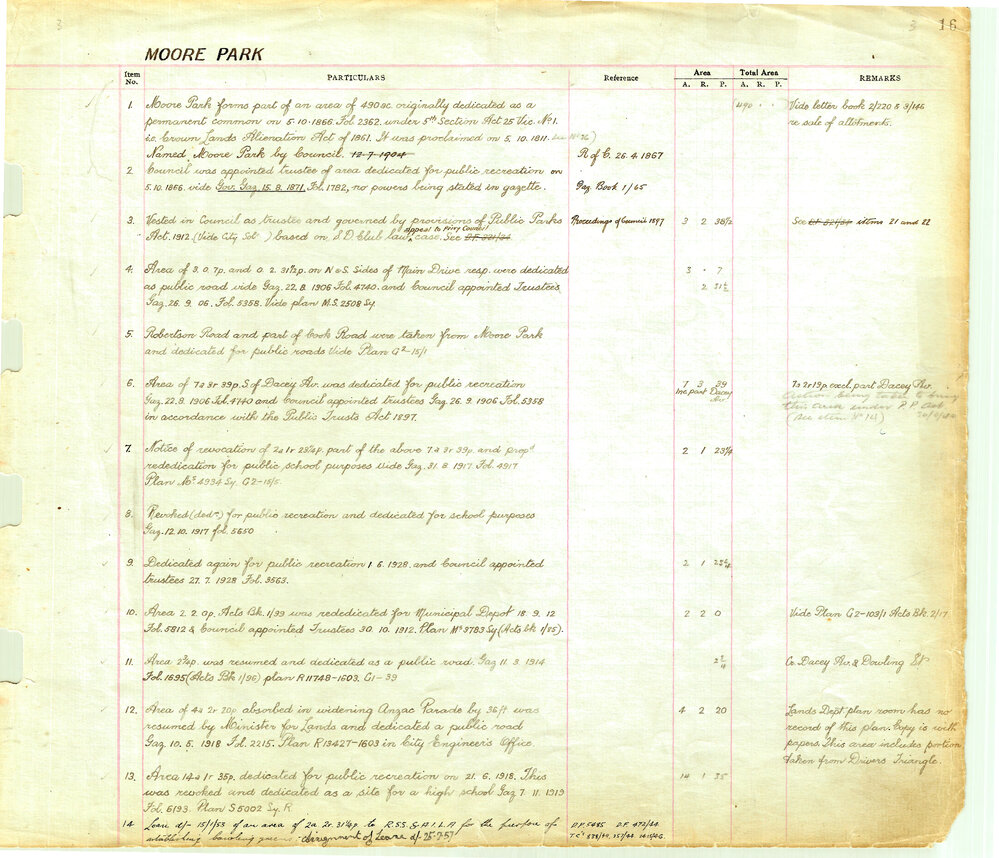 3 3 16
MOORE PARK
Item No. PARTICULARS Reference Area A. R. P. Total Area A. R. P. REMARKS
1. Moore Park forms part of an area of 490ac. originally dedicated as a 490 · · Vide letter book 2/220 & 3/146
permanent common on 5.10.1866. Fol 2362. under 5th Section Act 25 Vic. No1. re sale of allotments.
ie. Crown Lands Alienation Act of 1861. It was proclaimed on 5. 10. 1811. see
Named Moore Park by Council. 12-7-1904 R of C. 26. 4. 1867
2. Council was appointed trustee of area dedicated for public recreation on
5.10.1866. vide Gov. Gaz. 15. 8. 1871. Fol. 1782, no powers being stated in gazette. Gaz Book 1/65
3. Vested in Council as trustee and governed by provisions of Public Parks Proceedings of Council 1897 3 2 38½ See D.F. 221/34 items 21 and 22
appeal to Privy Council
Act. 1912. (Vide City Sol ) based on S.D. Club law case. See D.F. 221/34
4. Area of 3. 0. 7p. and 0. 2. 31½p. on N & S. Sides of Main Drive resp. were dedicated 3 · 7
as public road vide Gaz. 22. 8. 1906 Fol. 4740. and Council appointed Trustees 2 31½
Gaz. 26. 9. 06. Fol. 5358. Vide plan M.S. 2508 Sy.
5. Robertson Road and part of Cook Road were taken from Moore Park
and dedicated for public roads Vide Plan G2-15/1
6. Area of 7a 3r 39p. S. of Dacey Av. was dedicated for public recreation 7 3 39 7a 2r 19p excl. part Dacey Av.
Gaz. 22. 8. 1906 Fol. 4740 and Council appointed trustees Gaz. 26. 9. 1906 Fol. 5358 Inc part Dacey Av. action being taken to bring
in accordance with the Public Trusts Act 1897. this area under P.P. Act
(See item No 14)
7. Notice of revocation of 2a 1r 23¼p. part of the above 7a 3r 39p. and propd 2 1 23¼
rededication for public school purposes vide Gaz. 31. 8. 1917. Fol. 4917
Plan Ms 4934 Sy. G2-15/5.
8. Revoked (dedn) for public recreation and dedicated for school purposes
Gaz. 12. 10. 1917 fol. 5650
9. Dedicated again for public recreation 1. 6. 1928. and Council appointed 2 1 23¼
trustees 27. 7. 1928 Fol. 3563.
10. Area 2. 2. 0p. Acts Bk. 1/99 was rededicated for Municipal Depot 18. 9. 12 2 2 0 Vide Plan G2-103/1 Acts Bk. 2/17
Fol. 5812 & Council appointed Trustees 30. 10. 1912. Plan Ms 3783 Sy (Acts bk 1/85).
11. Area 2¾p. was resumed and dedicated as a public road. Gaz 11. 3. 1914 2¾ Cr. Dacey Av. & Dowling St
Fol. 1695 (Acts Bk 1/96) plan R11748-1603. G1-39
12. Area of 4a 2r 20p absorbed in widening Anzac Parade by 36ft. was 4 2 20 Lands Dept plan room has no
resumed by Minister for Lands and dedicated a public road record of this plan. Copy is with
Gaz. 10. 5. 1918 Fol. 2215. Plan R13427-1603 in City Engineer's Office. papers. This area includes portion
taken from Drivers Triangle.
13. Area 14a 1r 35p. dedicated for public recreation on 21. 6. 1918. This 14 1 35
was revoked and dedicated as a site for a high school Gaz 7. 11. 1919
Fol. 6193. Plan S5002 Sy. R
14. Lease d/- 15/1/53 of an area of 2a. 2r. 31¼p. to R.S.S. & A.I.L.A for the purpose of D.P. 5485 D.F. 472/44
establishing bowling greens - Assignment of Lease d/- 25-7-57